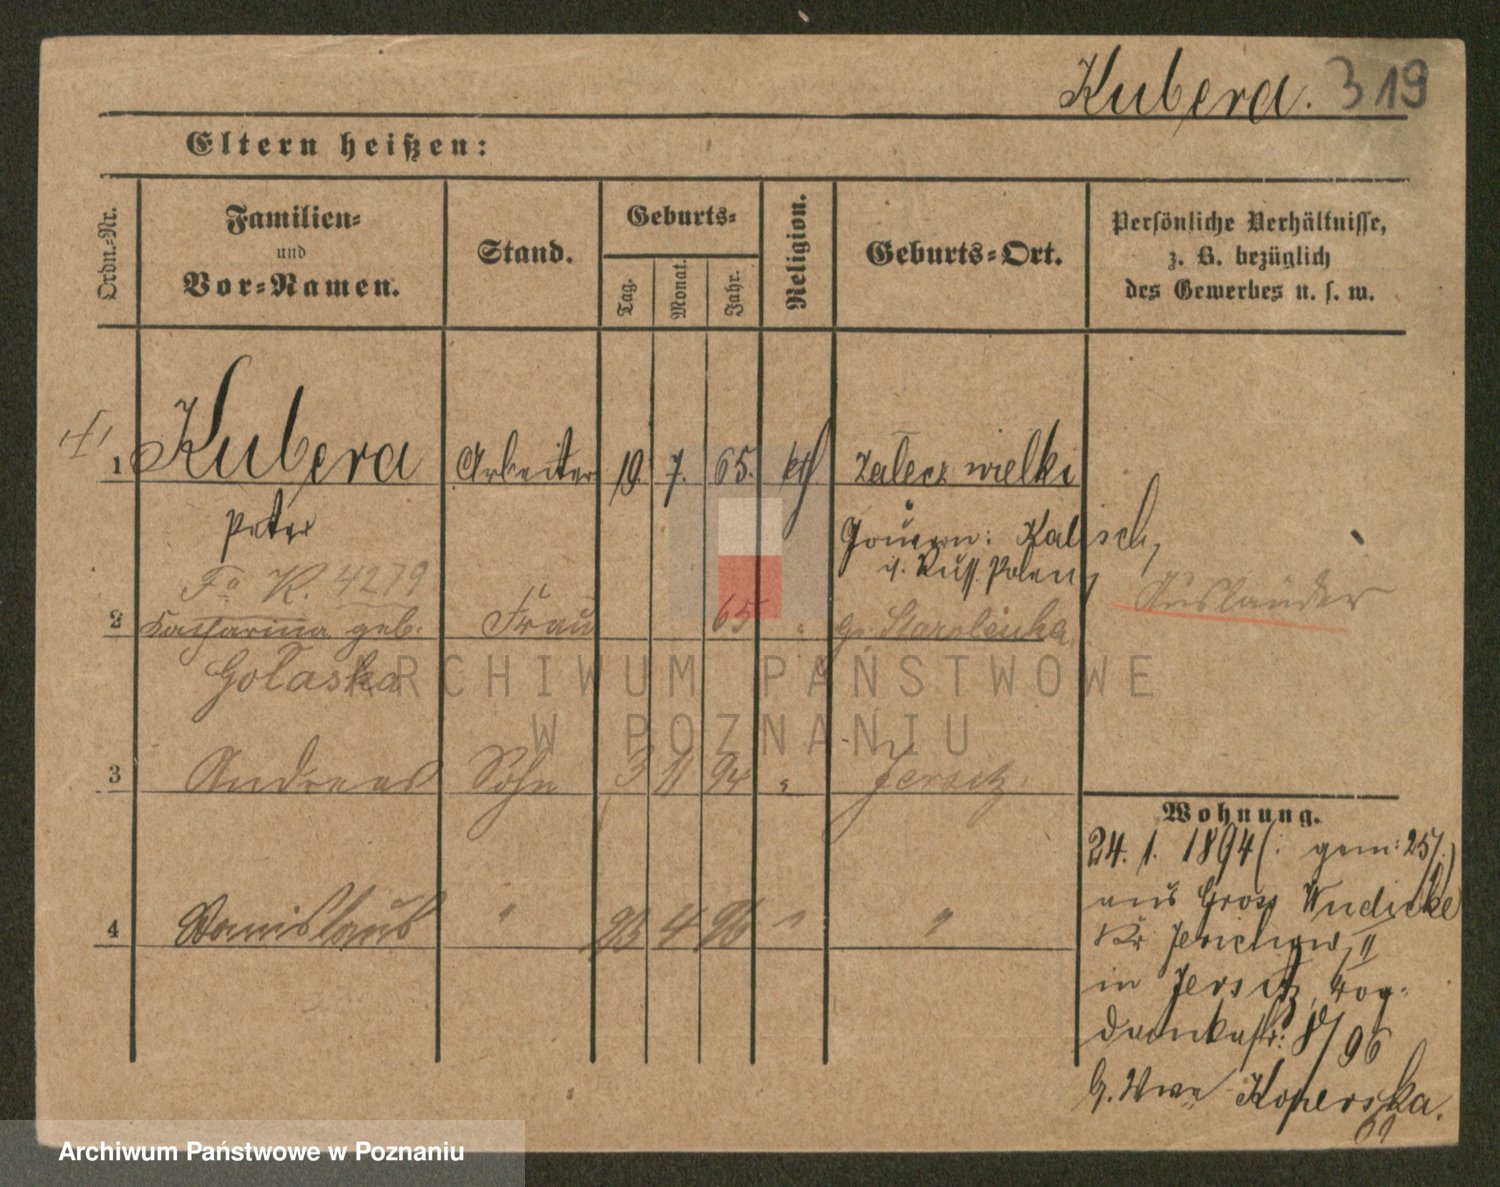 Kubera. 319
Eltern heißen:
Ordn.-Nr.
Familien-
und
Vor-Namen.
Stand.
Geburts-
Tag.
Monat.
Jahr.
Religion.
Geburts-Ort.
Persönliche Verhältnisse,
z. B. bezüglich
des Gewerbes u. s. w.
1 Kubera Arbeiter 19. 7. 65. kth Zalecz wielki
Peter
Gouvern: Kalisch,
i. Russ. Polen,
Fa K. 4279
2 Katharina geb. Frau 65 " Gr. Starolenka
Golaska
Ausländer
3 Andreas Sohn 3 11 94 " Jersitz
4 Stanislaus " 25 4 96 " "
Wohnung.
24. 1. 1894 (: gem: 25/.)
aus Gross Wudicke
Kr Jerichow II
in Jersitz,
8/96
Koperska.
ARCHIWUM PAŃSTWOWE
W POZNANIU
Archiwum Państwowe w Poznaniu